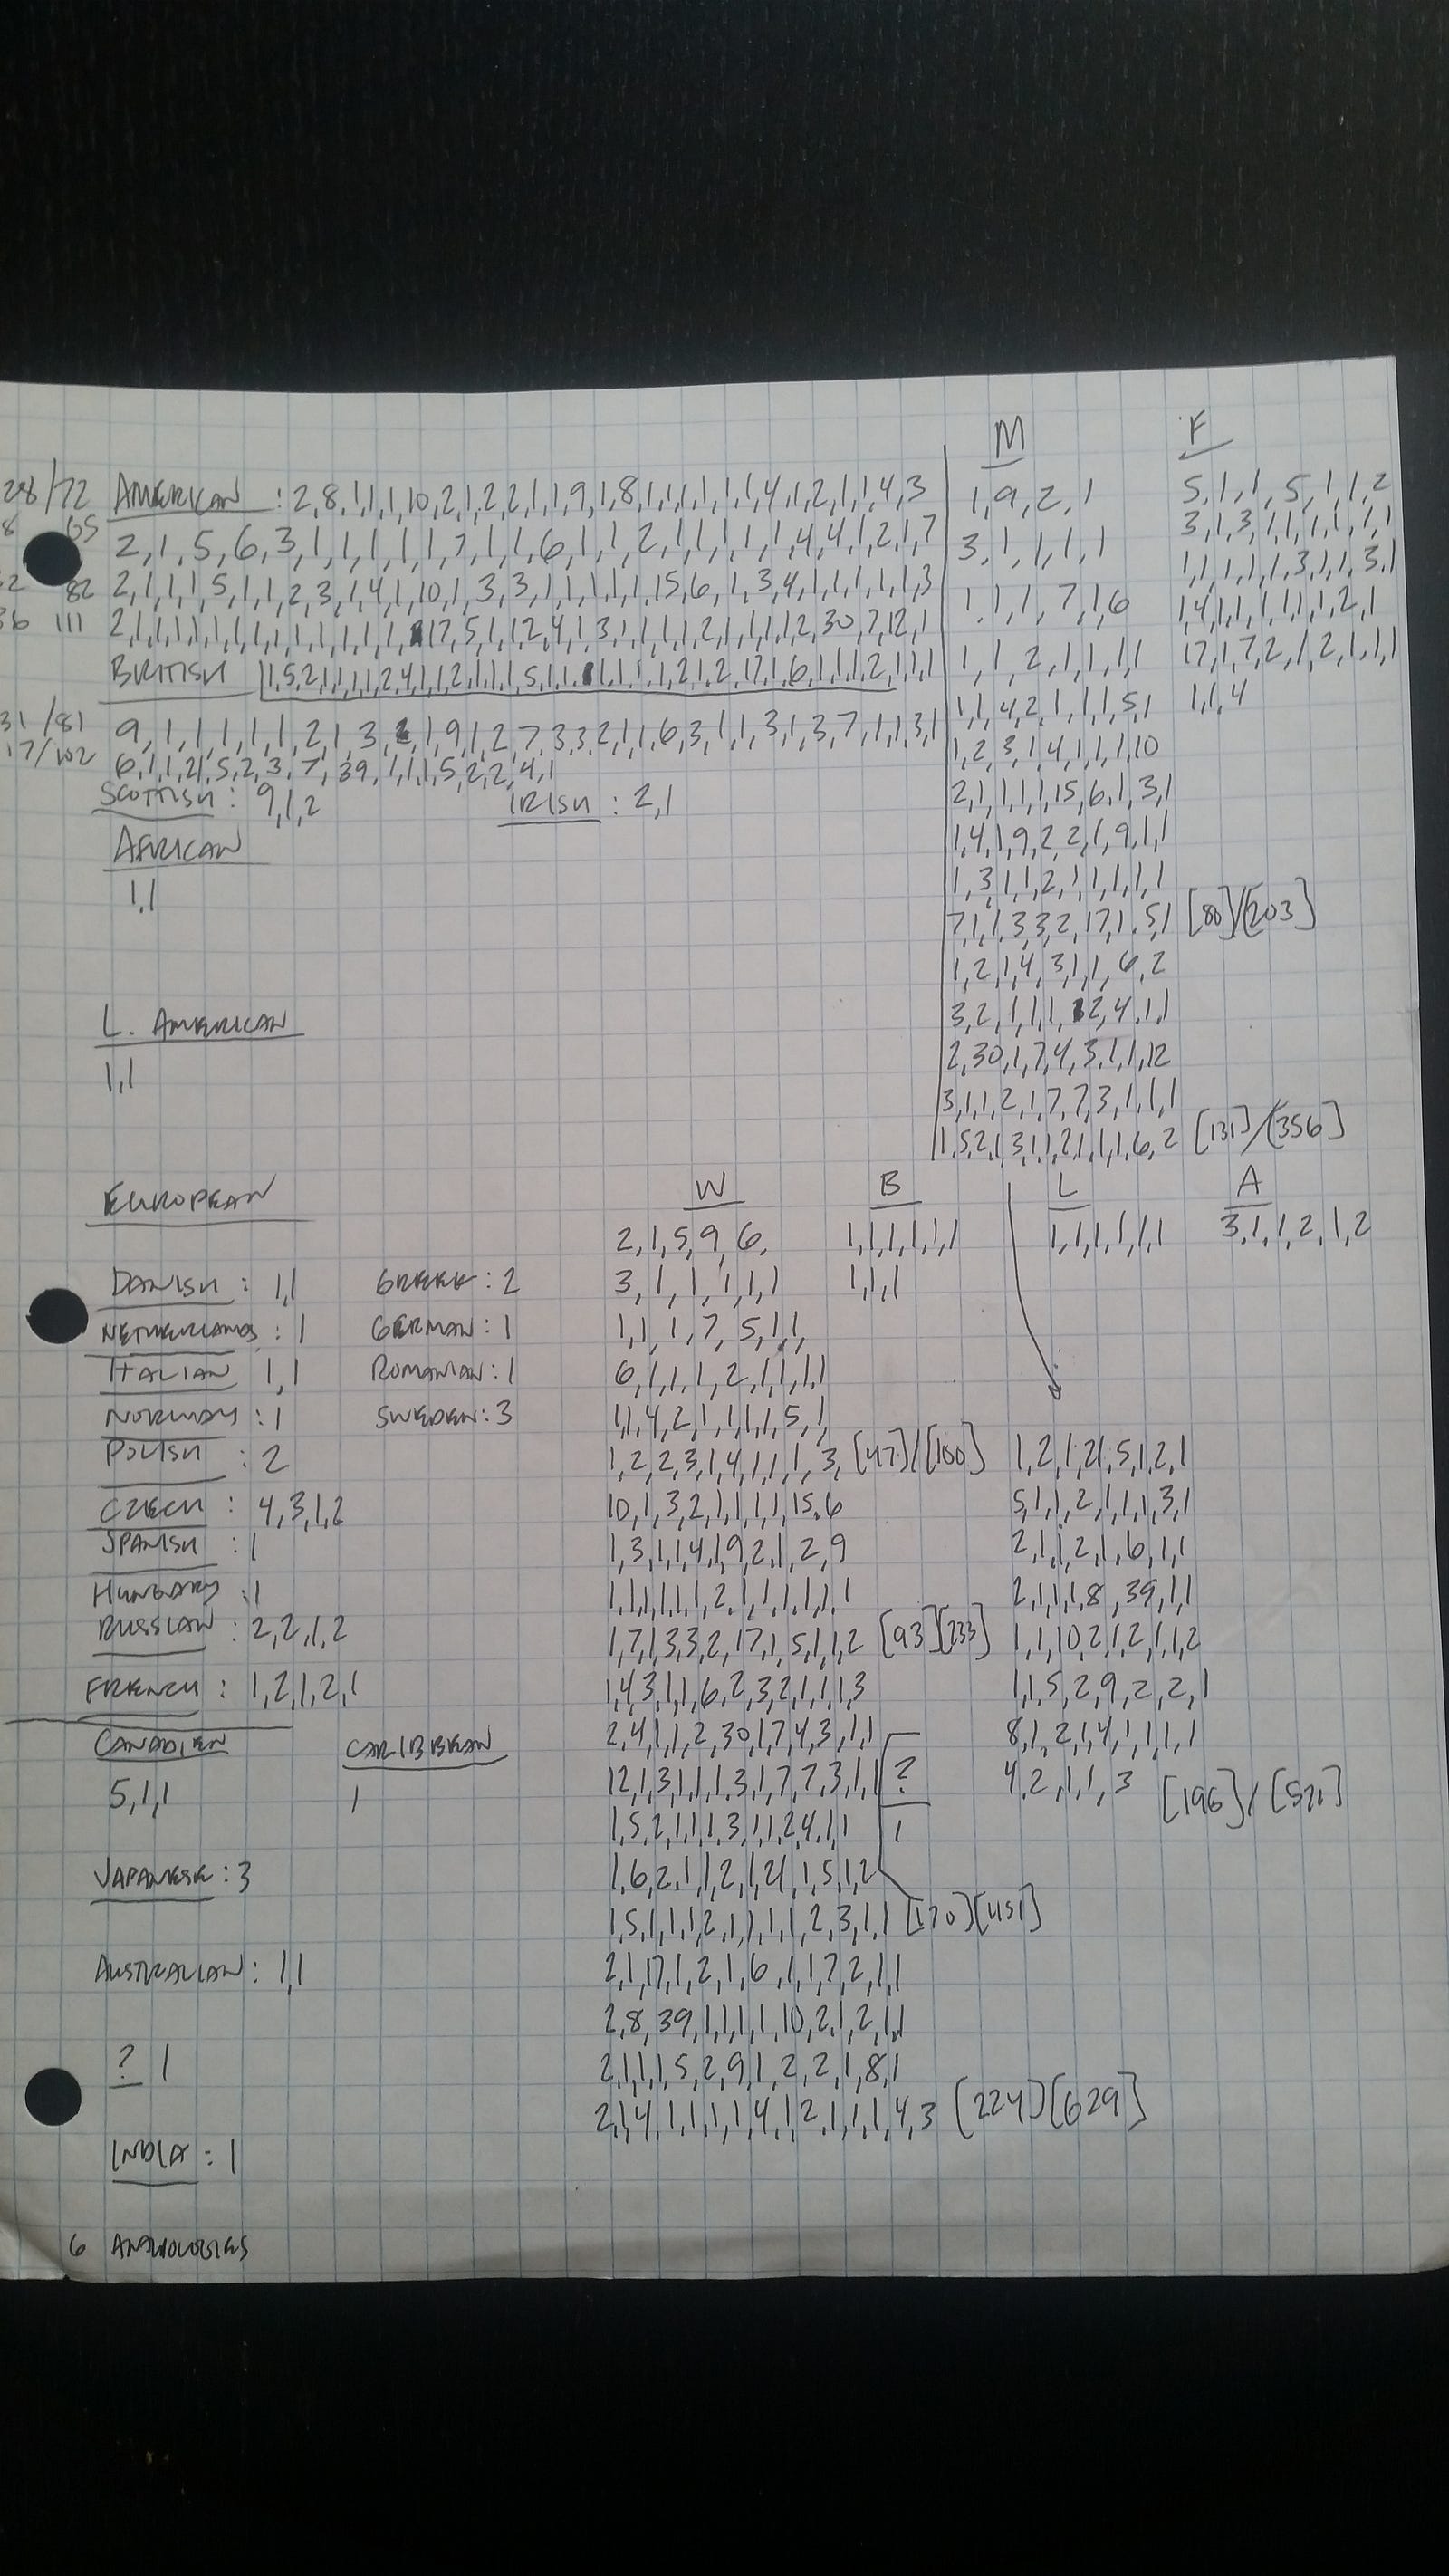 M F
28/72 AMERICAN : 2,8,1,1,1,10,2,1,2,2,1,1,9,1,8,1,1,1,1,1,1,4,1,2,1,1,4,3 1,9,2,1 5,1,1,5,1,1,2
8 65 2,1,5,6,3,1,1,1,1,1,1,7,1,1,6,1,1,2,1,1,1,1,1,4,4,1,2,1,7 3,1,1,1,1 3,1,3,1,1,1,1,1,1
82 2,1,1,1,5,1,1,2,3,1,4,1,10,1,3,3,1,1,1,1,1,15,6,1,3,4,1,1,1,1,1,3 1,1,1,7,1,6 1,1,1,1,1,3,1,1,3,1
36 111 2,1,1,1,1,1,1,1,1,1,1,1,1,1,17,5,1,1,2,4,1,3,1,1,1,1,2,1,1,1,1,2,30,7,12,1 1,4,1,1,1,1,1,1,2,1
BRITISH 1,5,2,1,1,1,1,2,4,1,1,2,1,1,1,5,1,1,1,1,1,1,2,1,2,17,1,6,1,1,1,2,1,1,1 1,1,2,1,1,1,1 17,1,7,2,1,2,1,1,1
31/81 9,1,1,1,1,1,2,1,3,1,9,1,2,7,3,3,2,1,1,6,3,1,1,3,1,3,7,1,1,3,1 1,1,4,2,1,1,1,5,1 1,1,4
17/102 6,1,1,21,5,2,3,7,39,1,1,1,5,2,2,4,1 1,2,3,1,4,1,1,1,10
SCOTTISH : 9,1,2 IRISH : 2,1 2,1,1,1,1,15,6,1,3,1
AFRICAN 1,4,1,9,2,2,1,9,1,1
1,1 1,3,1,1,2,1,1,1,1,1
7,1,1,3,3,2,17,1,5,1 [80]/[203]
1,2,1,4,3,1,1,6,2
L. AMERICAN 3,2,1,1,1,2,4,1,1
1,1 2,30,1,7,4,3,1,1,12
3,1,1,2,1,7,7,3,1,1,1
1,5,2,1,3,1,1,2,1,1,1,6,2 [131]/[356]
EUROPEAN W B L A
2,1,5,9,6, 1,1,1,1,1,1 1,1,1,1,1,1 3,1,1,2,1,2
DANISH : 1,1 GREEK : 2 3,1,1,1,1,1 1,1,1
NETHERLANDS : 1 GERMAN : 1 1,1,1,7,5,1,1,
ITALIAN 1,1 ROMANIAN : 1 6,1,1,1,2,1,1,1,1
NORWAY : 1 SWEDEN : 3 1,1,4,2,1,1,1,1,5,1
POLISH : 2 1,2,2,3,1,4,1,1,1,3, [47]/[100] 1,2,1,21,5,1,2,1
CZECH : 4,3,1,2 10,1,3,2,1,1,1,1,15,6 5,1,1,2,1,1,1,3,1
SPANISH : 1 1,3,1,1,4,1,9,2,1,2,9 2,1,1,2,1,6,1,1
HUNGARY : 1 1,1,1,1,1,1,2,1,1,1,1,1,1 2,1,1,1,8,39,1,1
RUSSIAN : 2,2,1,2 1,7,1,3,3,2,17,1,5,1,1,2 [93][233] 1,1,10,2,1,2,1,1,2
FRENCH : 1,2,1,2,1 1,4,3,1,1,6,2,3,2,1,1,1,3 1,1,5,2,9,2,2,1
CANADIEN CARIBBEAN 2,4,1,1,2,30,1,7,4,3,1,1 8,1,2,1,4,1,1,1,1
5,1,1 1 12,1,3,1,1,1,3,1,7,7,3,1,1 ? 4,2,1,1,3 [196]/[521]
1,5,2,1,1,1,3,1,1,2,4,1,1 1
JAPANESE : 3 1,6,2,1,1,2,1,21,1,5,1,2
1,5,1,1,1,2,1,1,1,1,2,3,1,1 [170][451]
AUSTRALIAN : 1,1 2,1,17,1,2,1,6,1,1,7,2,1,1
2,8,39,1,1,1,1,10,2,1,2,1,1
? 1 2,1,1,1,5,2,9,1,2,2,1,8,1
2,1,4,1,1,1,1,4,1,2,1,1,1,4,3 [224][629]
INDIA : 1
6 ANTHOLOGIES